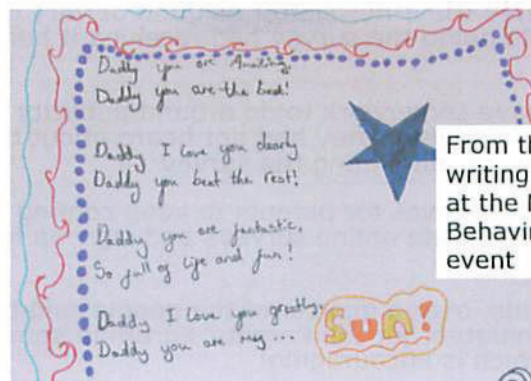 Daddy you are Amazing,
Daddy you are the best!
Daddy I love you dearly
Daddy you beat the rest!
Daddy you are fantastic,
So full of life and fun!
Daddy I love you greatly,
Daddy you are my ... Sun!
From th
writing
at the
Behavi
event